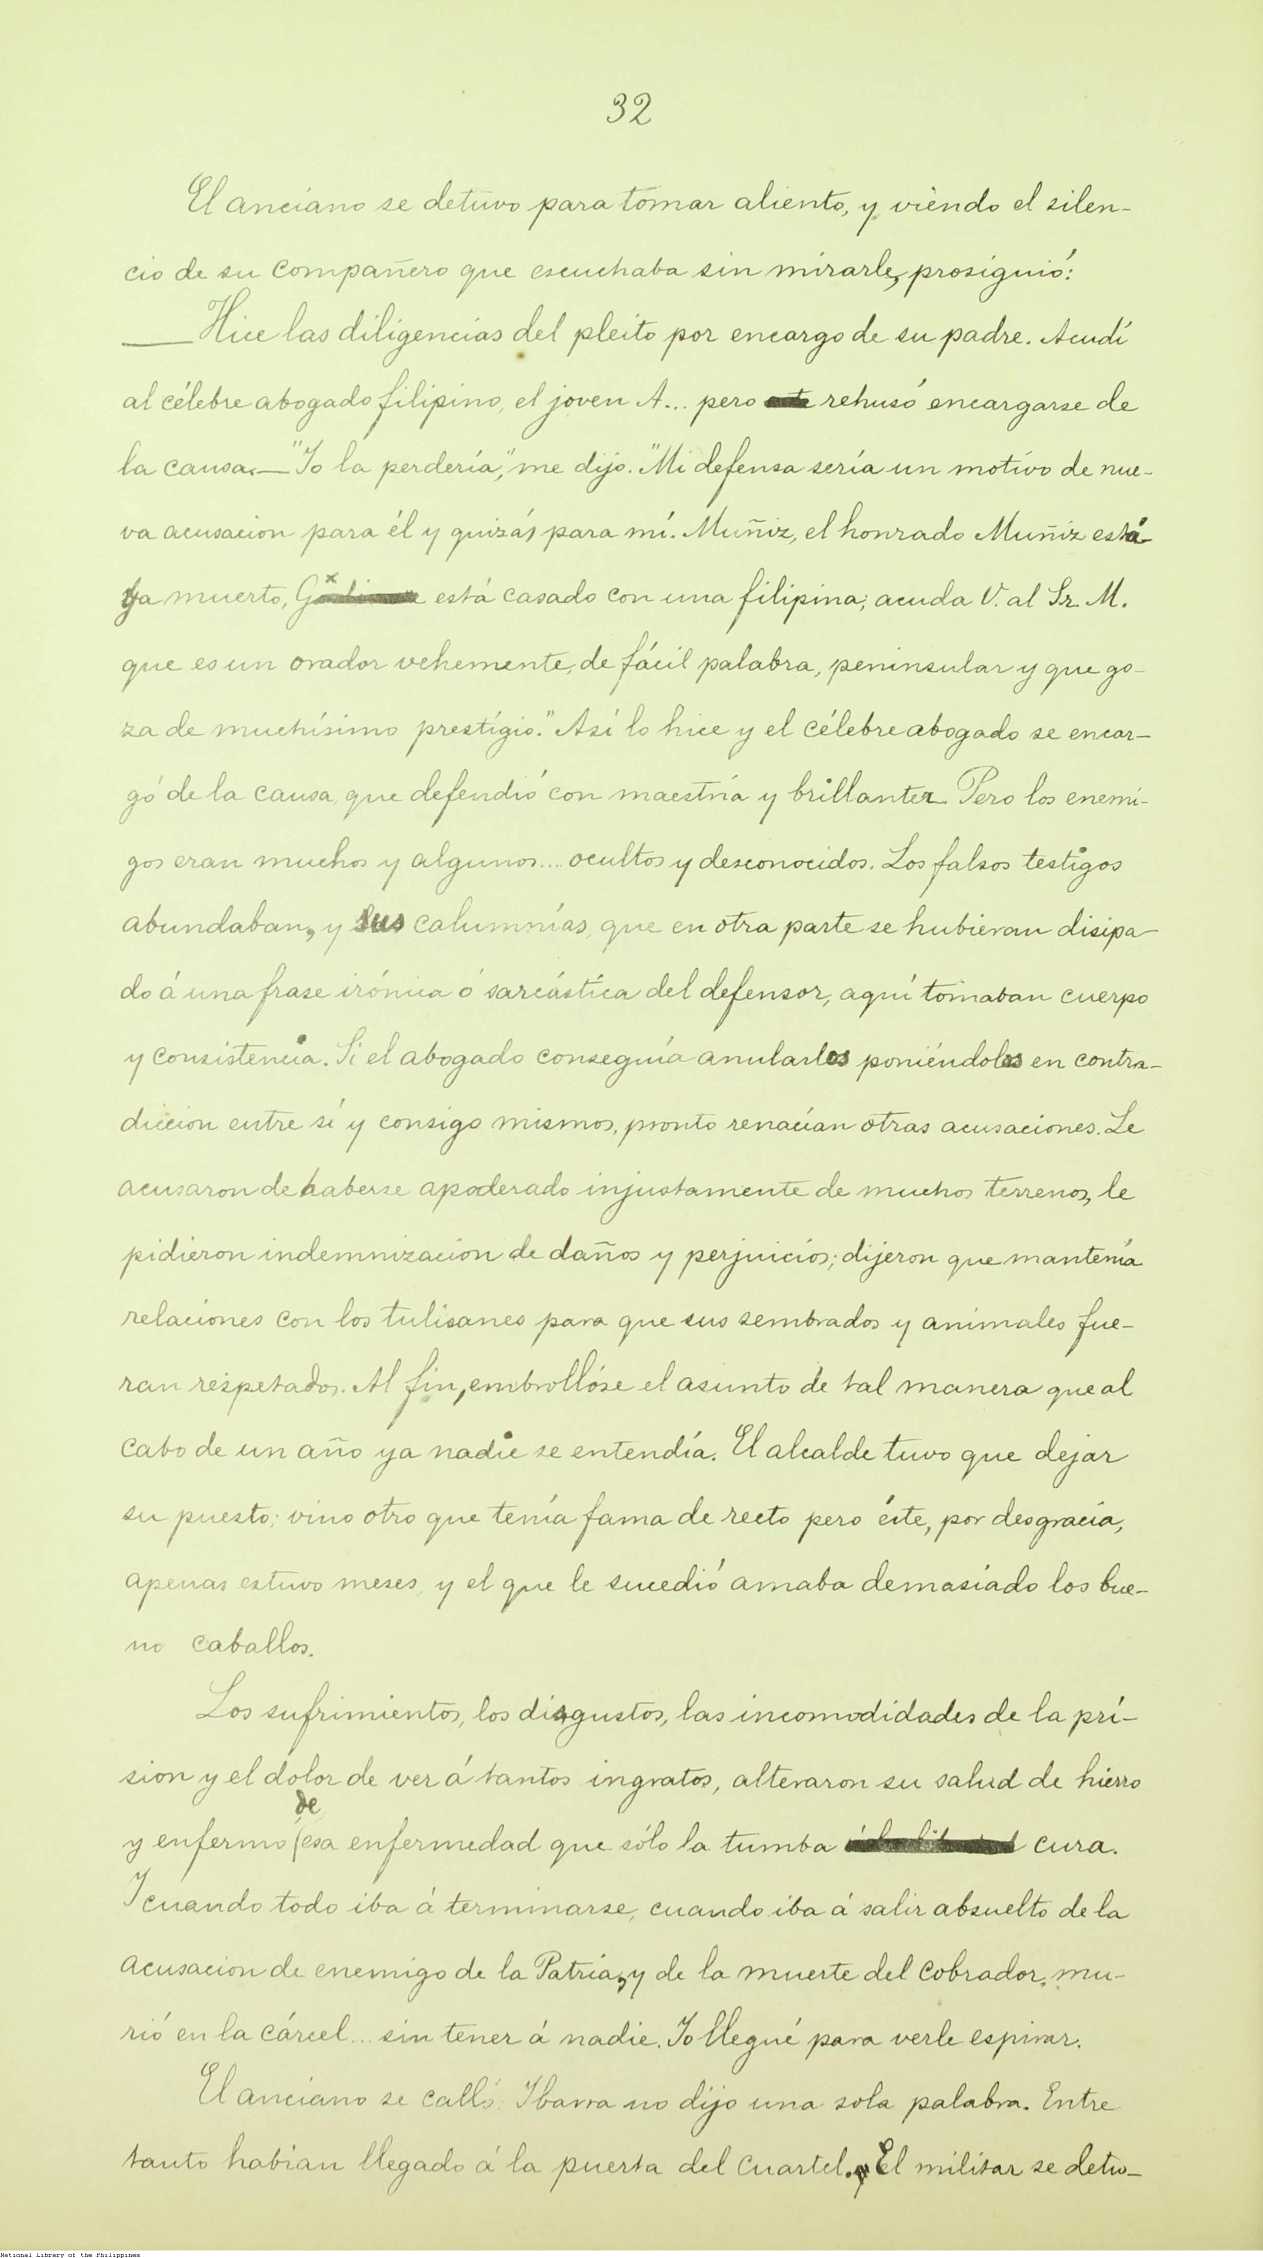 32
El anciano se detuvo para tomar aliento, y viendo el silen-
cio de su compañero que escuchaba sin mirarle, prosiguió:
—Hice las diligencias del pleito por encargo de su padre. Acudí
al célebre abogado filipino, el joven A... pero rehusó encargarse de
la causa.—"Yo la perdería", me dijo. "Mi defensa sería un motivo de nue-
va acusacion para él y quizás para mí. Muñiz, el honrado Muñiz está
ya muerto, G está casado con una filipina; acuda V. al Sr. M.
que es un orador vehemente, de fácil palabra, peninsular y que go-
za de muchísimo prestigio." Así lo hice y el célebre abogado se encar-
gó de la causa, que defendió con maestría y brillantez. Pero los enemi-
gos eran muchos y algunos... ocultos y desconocidos. Los falsos testigos
abundaban, y sus calumnias, que en otra parte se hubieran disipa-
do á una frase irónica ó sarcástica del defensor, aquí tomaban cuerpo
y consistencia. Si el abogado conseguía anularlos poniéndolos en contra-
diccion entre sí y consigo mismos, pronto renacían otras acusaciones. Le
acusaron de haberse apoderado injustamente de muchos terrenos, le
pidieron indemnizacion de daños y perjuicios; dijeron que mantenía
relaciones con los tulisanes para que sus sembrados y animales fue-
ran respetados. Al fin, embrollóse el asunto de tal manera que al
cabo de un año ya nadie se entendía. El alcalde tuvo que dejar
su puesto; vino otro que tenía fama de recto pero éste, por desgracia,
apenas estuvo meses, y el que le sucedió amaba demasiado los bue-
no caballos.
Los sufrimientos, los disgustos, las incomodidades de la pri-
sion y el dolor de ver á tantos ingratos, alteraron su salud de hierro
de
y enfermo esa enfermedad que sólo la tumba cura.
Y cuando todo iba á terminarse, cuando iba á salir absuelto de la
acusacion de enemigo de la Patria, y de la muerte del cobrador, mu-
rió en la cárcel... sin tener á nadie. Yo llegué para verle espirar.
El anciano se calló; Ibarra no dijo una sola palabra. Entre
tanto habían llegado á la puerta del cuartel. El militar se detu-
National Library of the Philippines